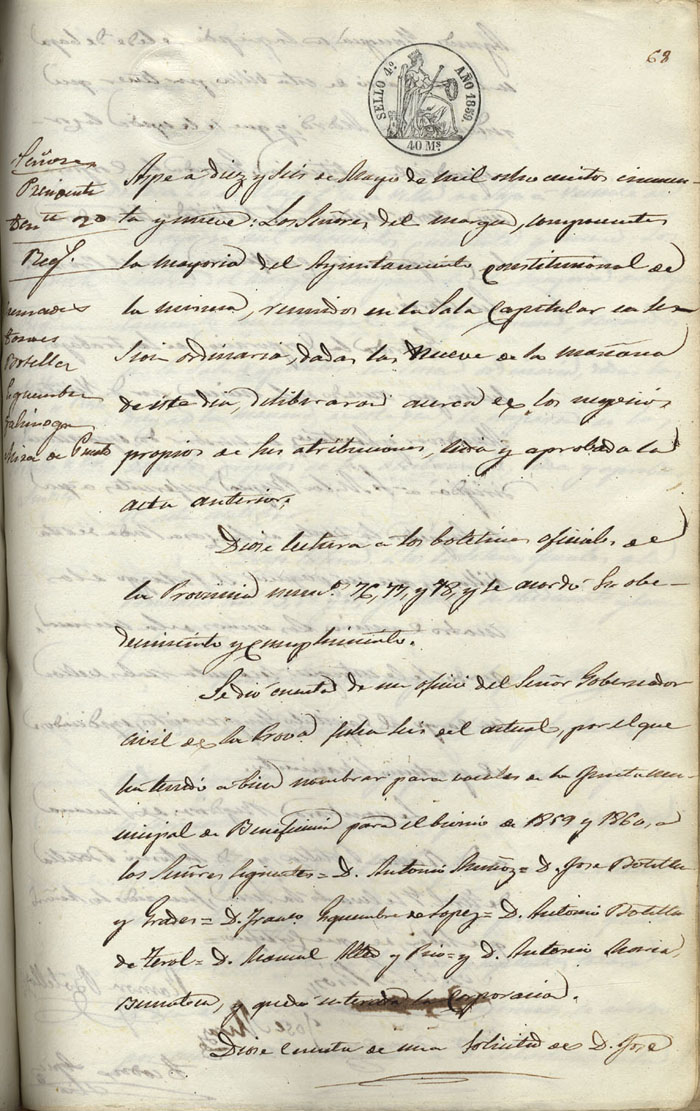 68
SELLO 4º AÑO 1859.
40 Ms.
Señores
Presidente
Tente 2º
Regs.
Tormes
Botella
Yzquierdo
Aspe a diez y seis de Mayo de mil ochocientos cincuen-
ta y nueve: Los Señores del margen, componentes
la mayoria del Ayuntamiento constitucional de
la misma, reunidos en la Sala Capitular en se-
sion ordinaria, dadas las nueve de la mañana
de este dia, deliberaron acerca de los negocios
propios de sus atribuciones, leida y aprobada la
acta anterior.
Diose lectura a los boletines oficiales de
la Provincia numos. 76, 77, y 78, y se acordó su obe-
decimiento y cumplimiento.
Se dió cuenta de un oficio del Señor Gobernador
civil de la Prova. fecha seis del actual, por el que
ha tenido a bien nombrar para vocales en la Junta mu-
nicipal de Beneficencia para el bienio de 1859 y 1860, a
los Señores siguientes = D. Antonio Muñoz = D. Jose Botella
y Grades = D. Franco. Yzquierdo de Lopez = D. Antonio Botella
de Terol = D. Manuel Alted y Pico = y D. Antonio Maria
y quedó enterada la Corporacion.
Diose cuenta de una solicitud de D. Jose